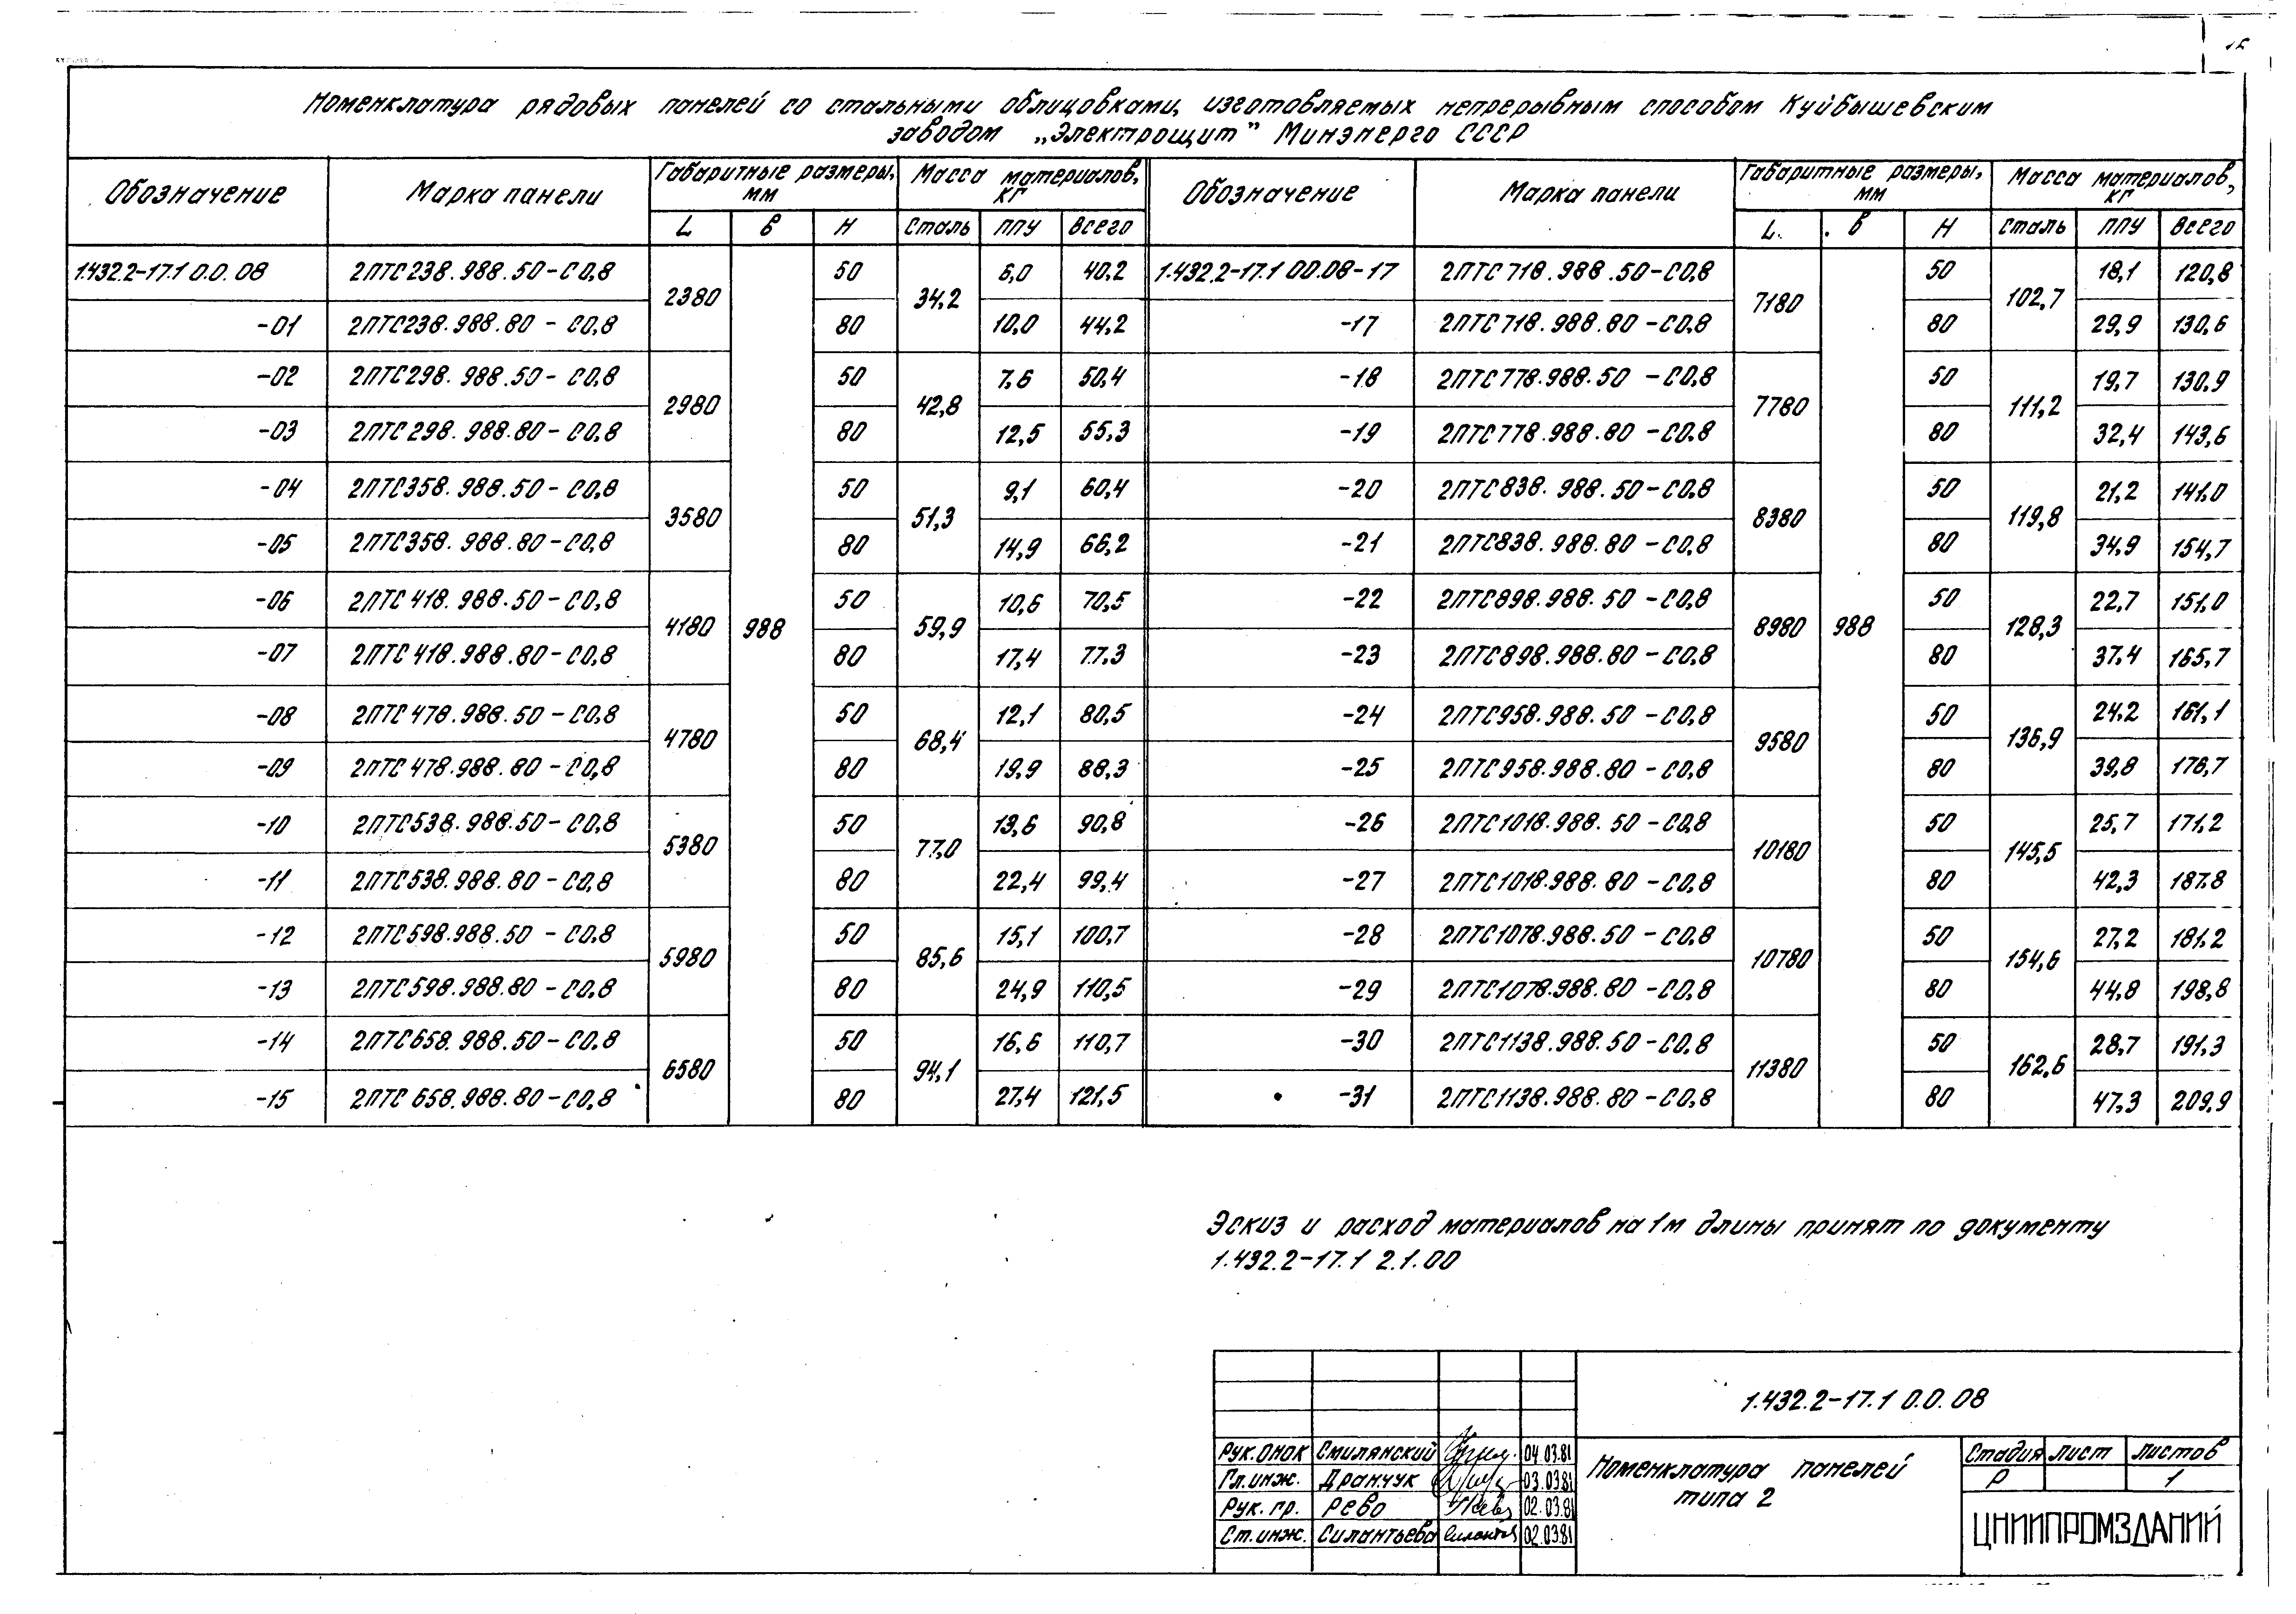 Номенклатура рядовых панелей со стальными облицовками, изготовляемых непрерывным способом Куйбышевским
заводом „Электрощит” Минэнерго СССР
Обозначение Марка панели Габаритные размеры, мм Масса материалов, кг Обозначение Марка панели Габаритные размеры, мм Масса материалов, кг
L в H Сталь ППУ Всего L в H Сталь ППУ Всего
1.432.2-17.1 0.0.08 2ПТС238.988.50-С0,8 2380 988 50 34,2 6,0 40,2 1.432.2-17.1 00.08-17 2ПТС718.988.50-С0,8 7180 988 50 102,7 18,1 120,8
-01 2ПТС238.988.80-С0,8 80 10,0 44,2 -17 2ПТС718.988.80-С0,8 80 29,9 130,6
-02 2ПТС298.988.50-С0,8 2980 50 42,8 7,6 50,4 -18 2ПТС778.988.50-С0,8 7780 50 111,2 19,7 130,9
-03 2ПТС298.988.80-С0,8 80 12,5 55,3 -19 2ПТС778.988.80-С0,8 80 32,4 143,6
-04 2ПТС358.988.50-С0,8 3580 50 51,3 9,1 60,4 -20 2ПТС838.988.50-С0,8 8380 50 119,8 21,2 141,0
-05 2ПТС358.988.80-С0,8 80 14,9 66,2 -21 2ПТС838.988.80-С0,8 80 34,9 154,7
-06 2ПТС418.988.50-С0,8 4180 50 59,9 10,6 70,5 -22 2ПТС898.988.50-С0,8 8980 50 128,3 22,7 151,0
-07 2ПТС418.988.80-С0,8 80 17,4 77,3 -23 2ПТС898.988.80-С0,8 80 37,4 165,7
-08 2ПТС478.988.50-С0,8 4780 50 68,4 12,1 80,5 -24 2ПТС958.988.50-С0,8 9580 50 136,9 24,2 161,1
-09 2ПТС478.988.80-С0,8 80 19,9 88,3 -25 2ПТС958.988.80-С0,8 80 39,8 176,7
-10 2ПТС538.988.50-С0,8 5380 50 77,0 13,6 90,8 -26 2ПТС1018.988.50-С0,8 10180 50 145,5 25,7 171,2
-11 2ПТС538.988.80-С0,8 80 22,4 99,4 -27 2ПТС1018.988.80-С0,8 80 42,3 187,8
-12 2ПТС598.988.50-С0,8 5980 50 85,6 15,1 100,7 -28 2ПТС1078.988.50-С0,8 10780 50 154,6 27,2 181,2
-13 2ПТС598.988.80-С0,8 80 24,9 110,5 -29 2ПТС1078.988.80-С0,8 80 44,8 198,8
-14 2ПТС658.988.50-С0,8 6580 50 94,1 16,6 110,7 -30 2ПТС1138.988.50-С0,8 11380 50 162,6 28,7 191,3
-15 2ПТС658.988.80-С0,8 80 27,4 121,5 -31 2ПТС1138.988.80-С0,8 80 47,3 209,9
Эскиз и расход материалов на 1м длины принят по документу
1.432.2-17.1 2.1.00
1.432.2-17.1 0.0.08
Рук.ОНОК Смилянский 04.03.81
Гл.инж. Дранчук 03.03.81
Рук.гр. Рево 02.03.81
Ст.инж. Силантьева 02.03.81
Номенклатура панелей
типа 2
Стадия Лист Листов
Р 1
ЦНИИПРОМЗДАНИЙ